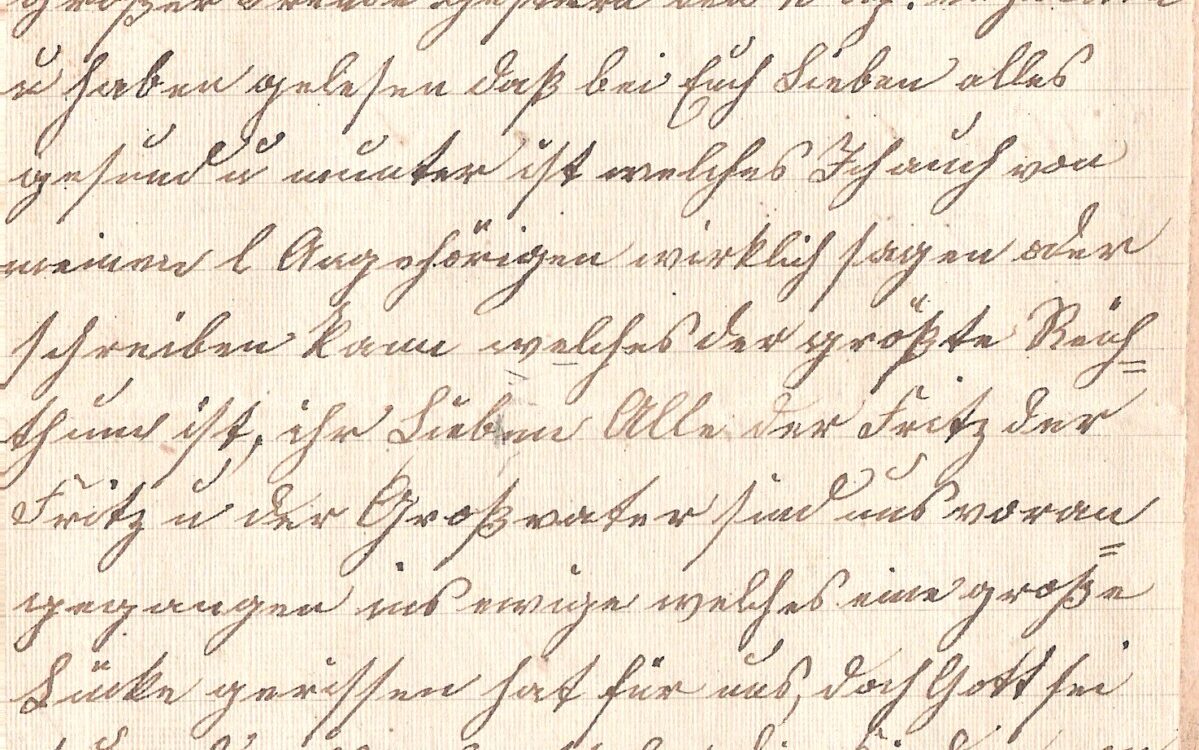 großer Freude gestern den
u haben gelesen daß bei Euch Lieben alles
gesund u munter ist welches Ich auch von
meinen l Angehörigen wirklich sagen oder
schreiben kann welches der größte Reich=
thum ist, ihr Lieben Alle der Fritz der
Fritz u der Großvater sind uns voran=
gegangen ins ewige welches eine große
Lücke gerissen hat für uns, doch Gott sei